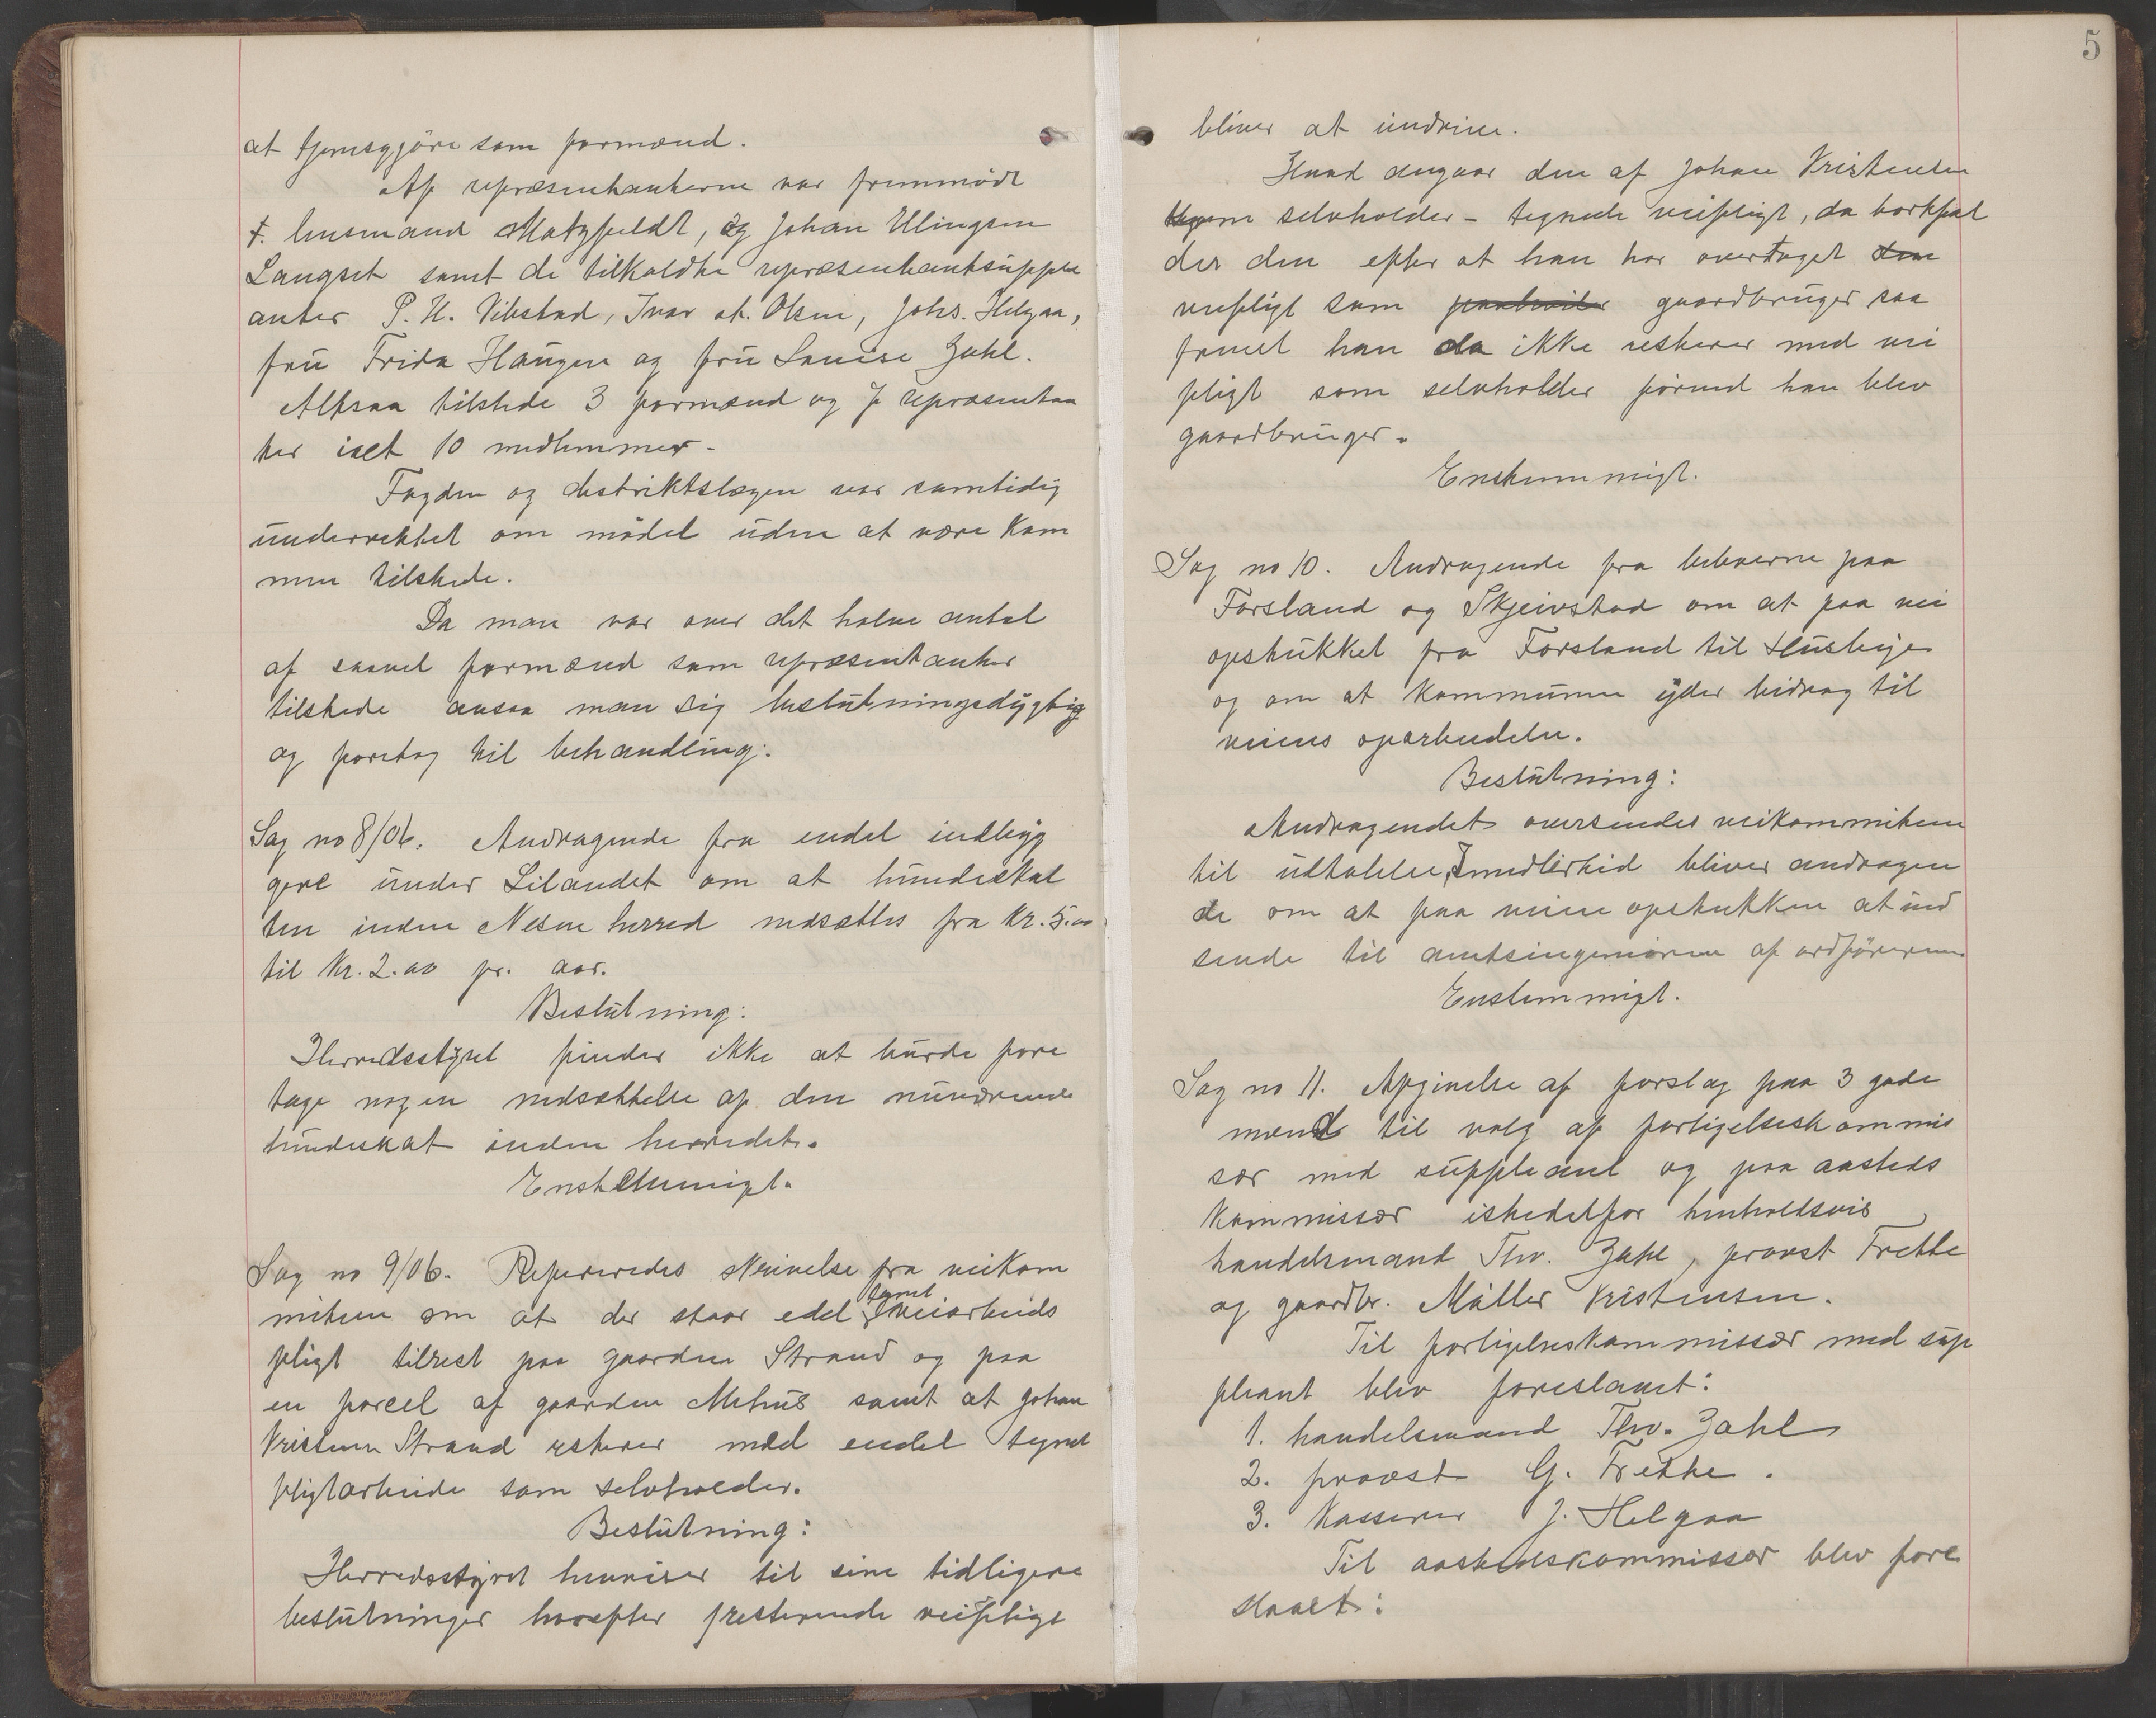 at tjenesgjöre som formænd.
Af repræsentanterne var fremmødt
f. lensmand Motzfeldt, og Johan Ellingsen
Langset samt de tilkaldte repræsentantsupple
anter P. H. Vikstad, Ivar at. Olsen, Johs. Helgaa,
fru Frida Haugen og fru Louise Zahl.
Altsaa tilstede 3 formænd og 7 repræsentan
ter ialt 10 medlemmer.
Fogden og distriktslægen var samtidig
underrettet om mødet uden at være kom
men tilstede.
Da man var over det halve antal
af saavel formænd som repræsentanter
tilstede ansaa man sig beslutningsdygtig
og foretog til behandling:
Sag no 8/06. Andragende fra endel indbyg
gere under Lilandet om at hundeskat
ten inden Nesne herred nedsættes fra Kr. 5.00
til Kr. 2.00 pr. aar.
Beslutning:
Herredsstyret finder ikke at burde fore
tage nogen nedsættelse af den nuværende
hundeskat inden herredet.
Enstemmigt.
Sag no 9/06. Refereredes skrivelse fra veikom
miteen om at der staar edel tegnet veiarbeids
pligt tilrest paa gaarden Strand og paa
en parcel af gaarden Mehus samt at Johan
Kristensen Strand resterer med endel tegnet
pligtarbeide som selvholder.
Beslutning:
Herredsstyret henviser til sine tidligere
beslutninger hvorefter resterende veipligt
5
bliver at inddrive.
Hvad angaar den af Johan Kristensen
som selvholder - tegnede veipligt, da bortfal
der den efter at han har overtaget den
veipligt som gaardbruger saa
fremt han da ikke resterer med vei
pligt som selvholder førend han blev
gaardbruger.
Enstemmigt.
Sag no 10. Andragende fra beboerne paa
Forsland og Skjeivstad om at faa vei
opstukket fra Forsland til Husbye
og om at kommunen yder bidrag til
veiens oparbeidelse.
Beslutning:
Andragendet oversendes veikommiteen
til udtalelse, Imidlertid bliver andragen
de om at faa veien opstukken at ind
sende til amtsingeniøren af ordføreren
Enstemmigt.
Sag no 11. Afgivelse af forslag paa 3 gode
mænd til valg af forligelseskommis
sær med suppleant og paa aasteds
kommissær istedetfor henholdsvis
handelsmand Thv. Zahl, provst Frette
og gaardbr. Møller Kristensen.
Til forligelseskommissær med sup
pleant blev foreslaaet:
1. handelsmand Thv. Zahl
2. provst G. Frette.
3. Kasserer J. Helgaa
Til aastedskommissær blev fore
slaaet: